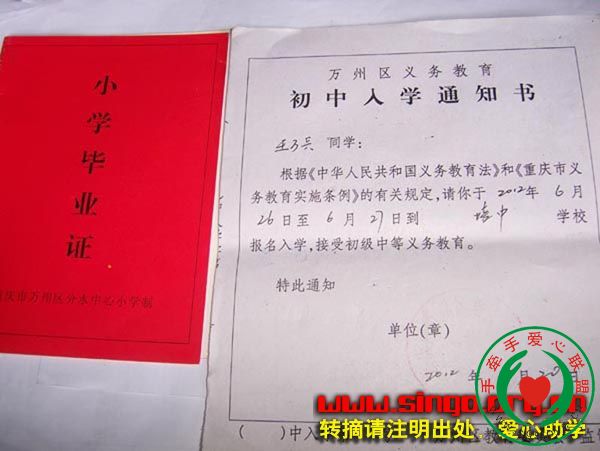 小学毕业证
重庆市万州区分水中心小学制
万州区义务教育
初中入学通知书
同学：
根据《中华人民共和国义务教育法》和《重庆市义
务教育实施条例》的有关规定，请你于2012年6月
26日至6月27日到 学校
报名入学，接受初级中等义务教育。
特此通知
单位(章)
2012年 月20日
手牵手爱心联盟
www.singo.org.cn
转摘请注明出处 爱心助学
( )中入